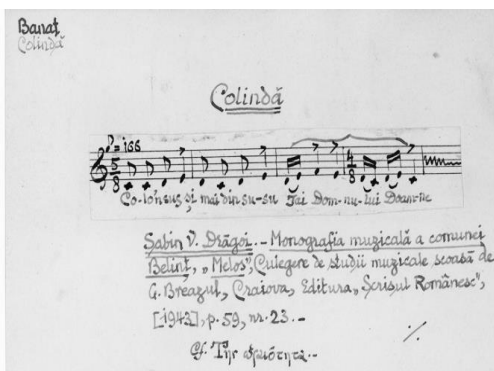 Banaț
Colindă
Colindă
♪= 166
5
8
4
8
Co-lo'n sus și mai din su-su Jai Dom-nu-lui Doam-ne
Sabin V. Drăgoi.-Monografia muzicală a comunei
Belinț, „Melos”, Culegere de studii muzicale scoasă de
G. Breazul, Craiova, Editura „Scrisul Românesc”,
[1943], p. 59, nr. 23.-
./.
cf.